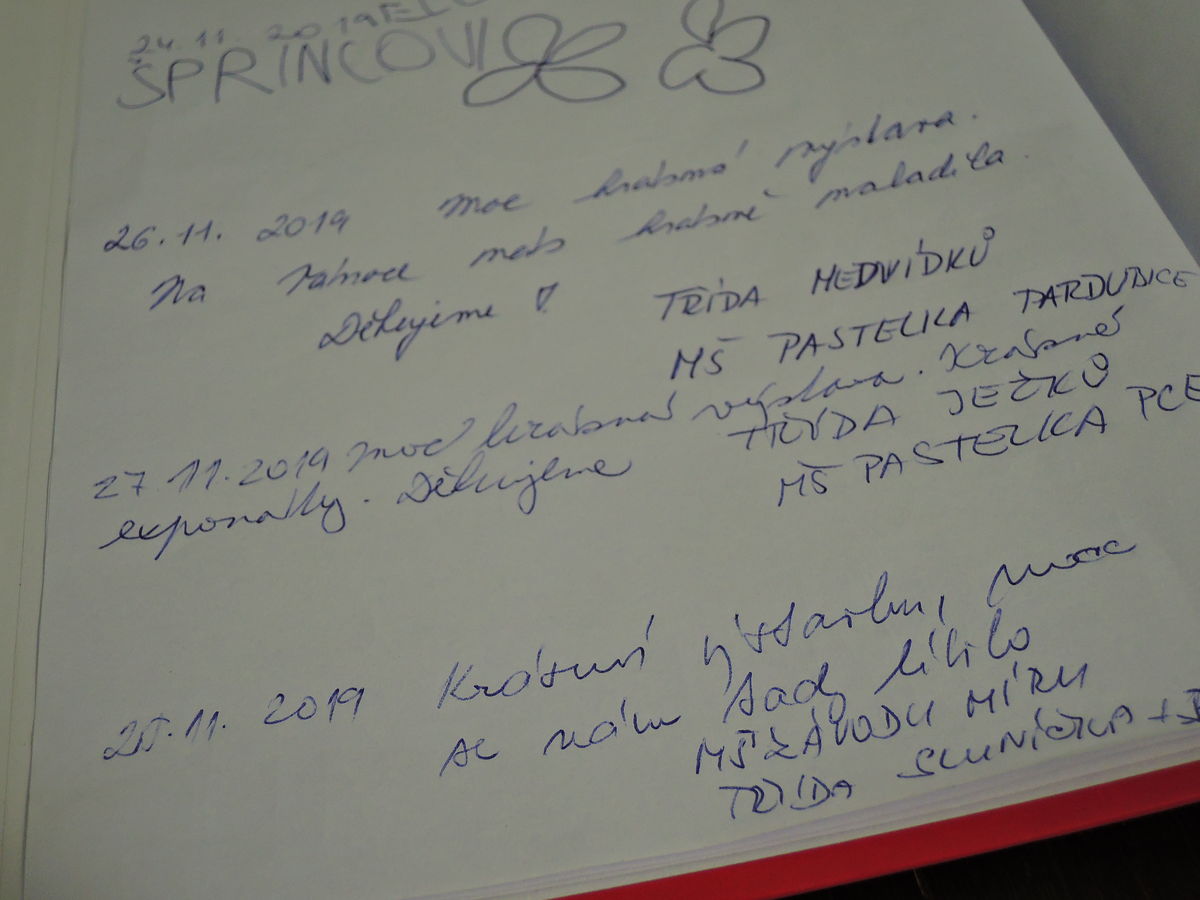 24.11.2019
ŠPRINCOVI
26.11. 2019 Moc krásná výstava.
Na Vánoce nás krásně naladila.
Děkujeme! TŘÍDA MEDVÍDKŮ
MŠ PASTELKA PARDUBICE
27.11.2019 moc krásná výstava. Krásné
exponáty. Děkujeme TŘÍDA JEŽKŮ
MŠ PASTELKA PCE
11. 2019 Krásná výstavka, moc
se nám tady líbilo
MŠ ZÁVODU MÍRU
TŘÍDA SLUNÍČKA +